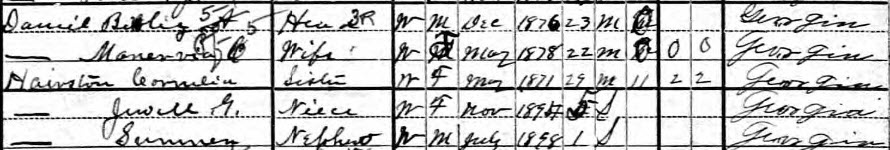 Daniel 55 Head 3R W M Dec 1876 23 M 0 Georgia
— Manerva 56 Wife W F May 1878 22 M 0 0 0 Georgia
Hairston Cornelia Sister W F May 1871 29 M 11 2 2 Georgia
— Jewell G. Niece W F Nov 1894 5 S Georgia
— Sumner Nephew W M July 1898 1 S Georgia